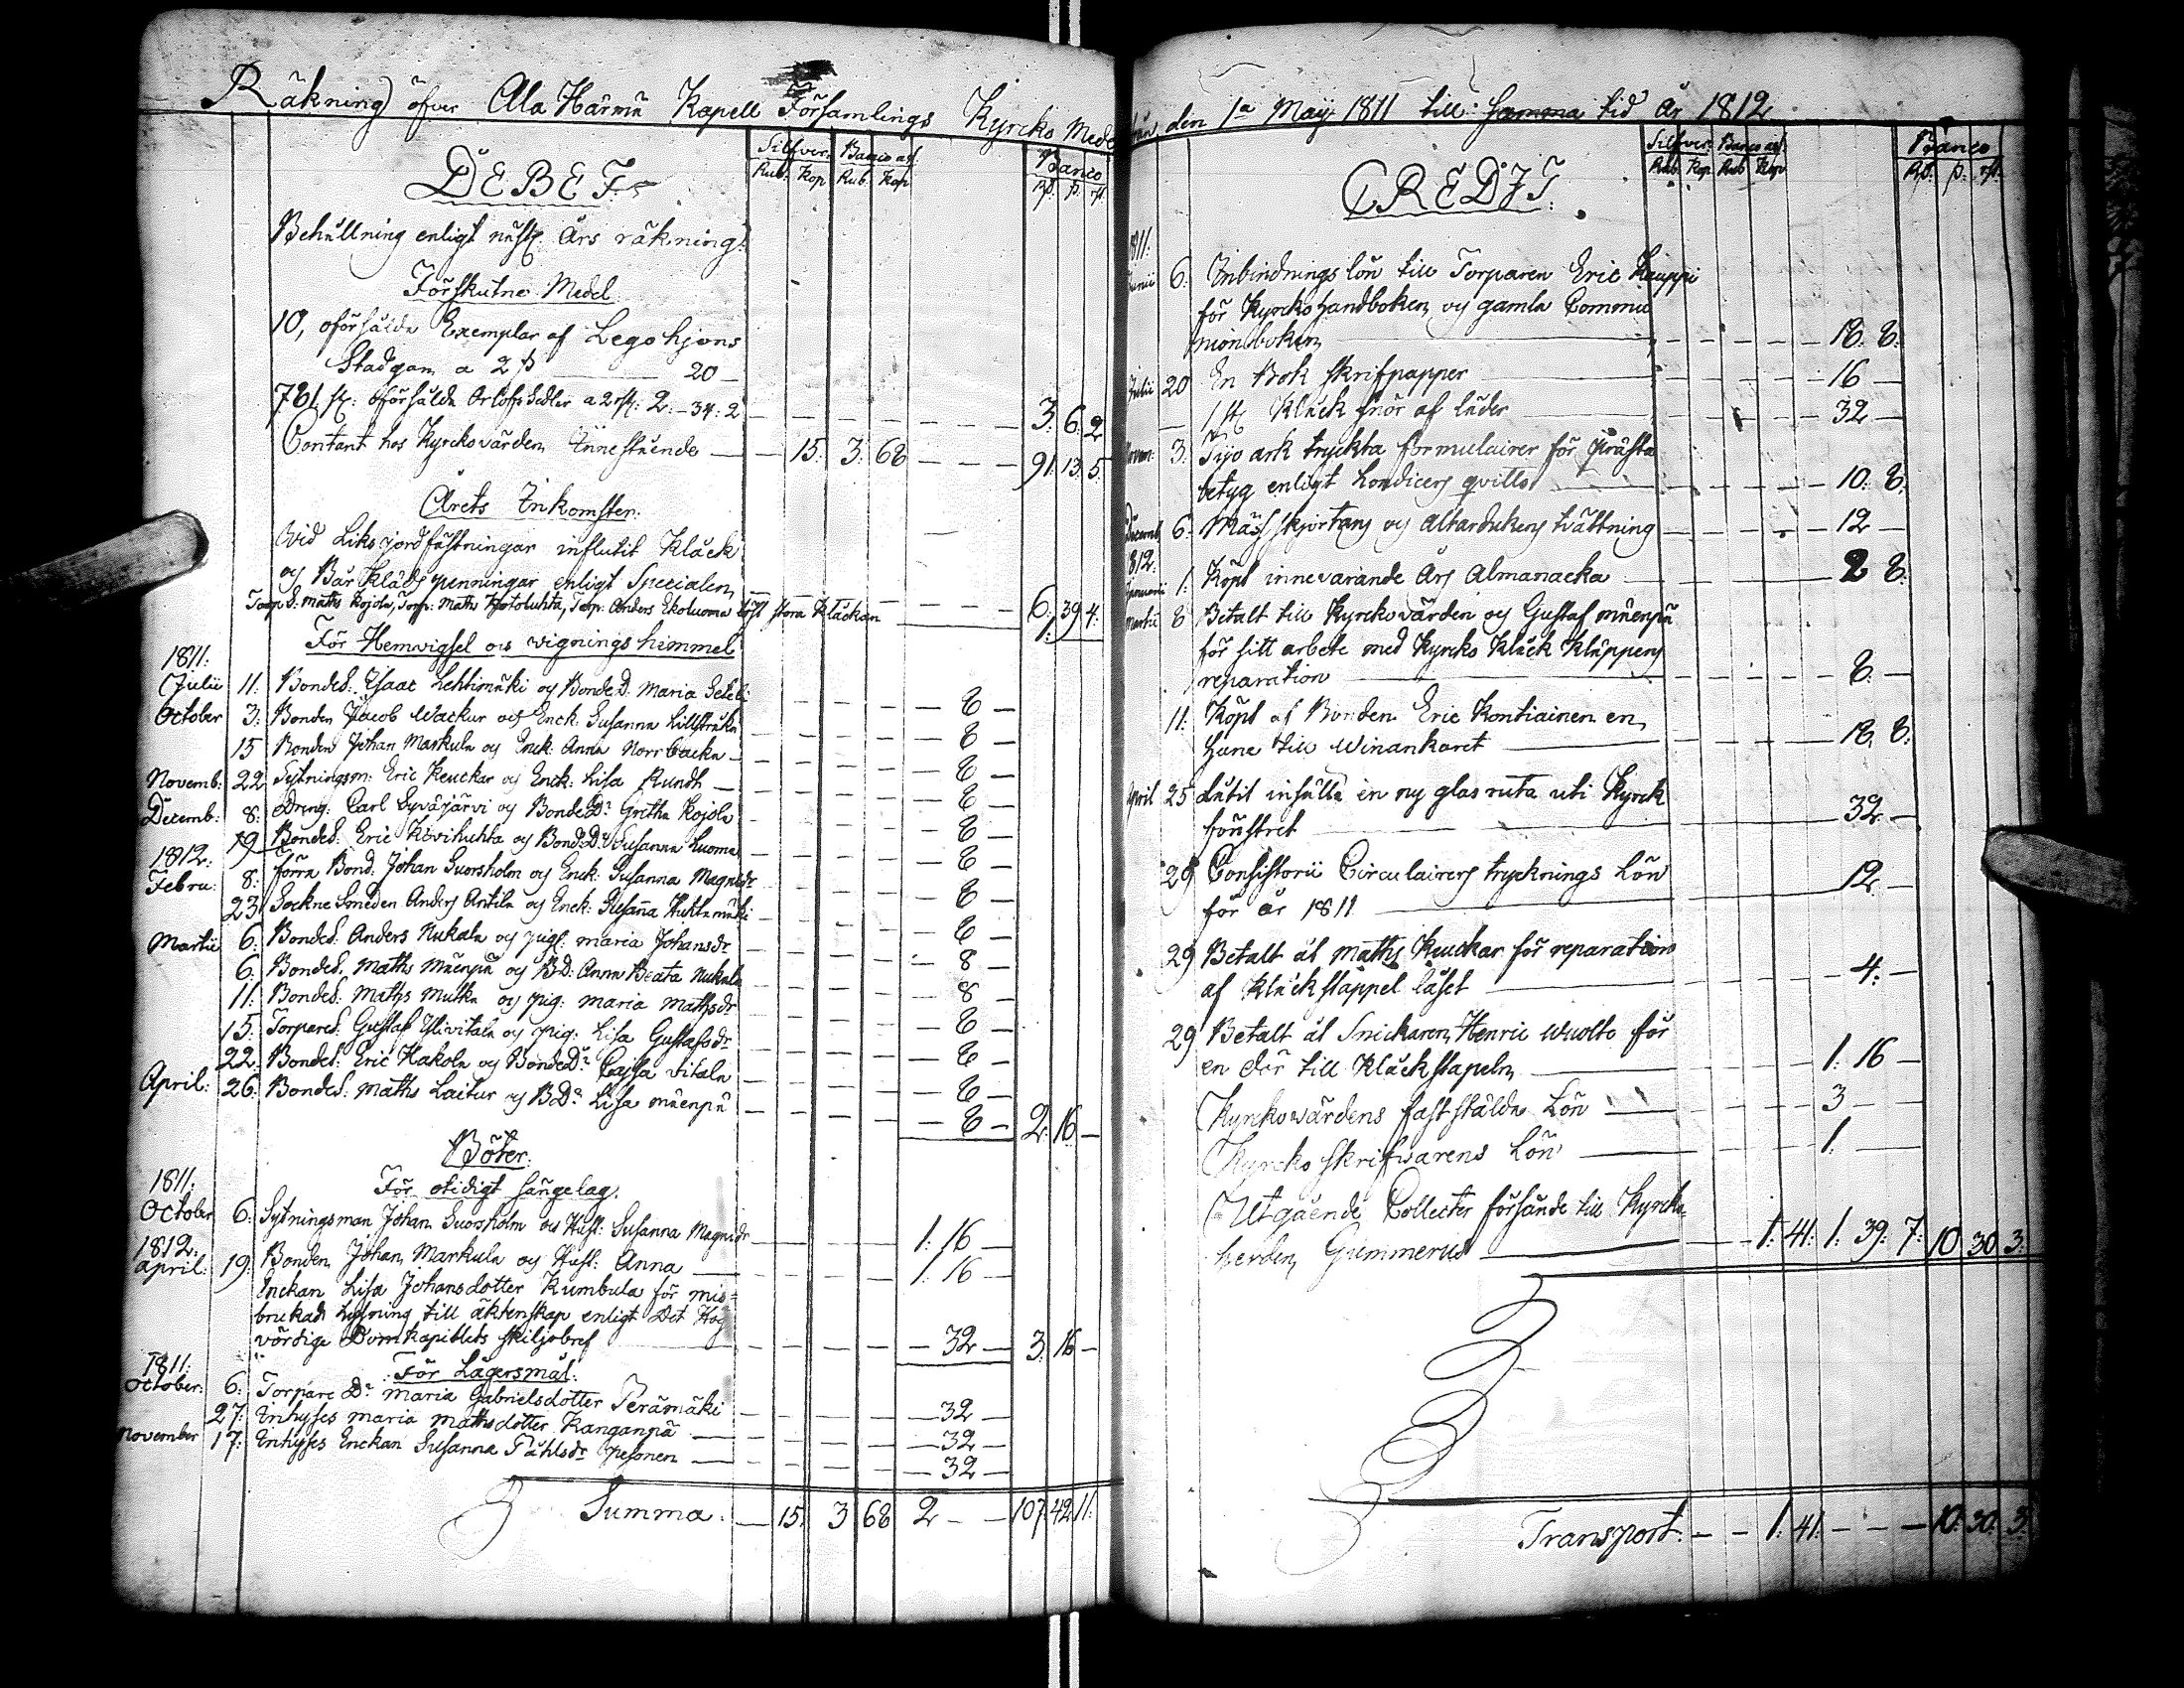 Räkning öfver Ala Härmä Kapell Församlings Kyrcko Medel
DEBET
Silfver: Banco ass: Banco
Rub: Kop Rub: Kop Rß: ß: rst:
Behållning enligt näst: Års räkning:
Förskutne Medel
10, oförsålda Exemplar af Legohjons
Stadgan a 2 ß — 20 —
781 st: oförsålda Orlofs Sedlar a 2 rst: 2: 34: 2 — 3: 6: 2
Contant hos Kyrckovärden Innestående — 15: 3: 68 — 91: 13: 5:
Årets Inkomster:
Vid Liks jordfästningar influtit Kläck
och Bår Kläds penningar enligt Specialen
6: 39 4:
Torp S: Maths Kojola, Torp: Maths Anders Ekoluoma stora Kläckan 1:
För Hemvigsel och wignings himmel
1811:
Julii 11: Bondes: Isaac Lehtimäki och Bonde D. Maria — 8 —
October 3: Bonden Jacob Wackur och Enck: Susanna — 8 —
15 Bonden Johan Markula och Enck: Anna Norrbacka — 8 —
Novemb: 22 Sytningsm: Eric Keuckar och Enck: Lisa Rundt — 8 —
Decemb: 8: Dreng: Carl Syväjärvi och Bonde Dr Gretha Kojola — 8 —
19 Bondes: Eric Kivihuhta och Bond: Dr Susanna Luoma — 8 —
1812:
Febru: 8: förra Bond: Johan Suorsholm och Enck: Susanna Magnidr — 8 —
23 Sockne Smeden Anders Antila och Enck: Susanna Huhtamäki — 8 —
Martii 6: Bondes: Anders Nukala och pigl: Maria Johansdr — 8 —
6: Bondes: Maths Mäenpä och BD: Anna Beata Nukala — 8 —
11: Bondes: Maths Mutka och pig: Maria Mathsdr — 8 —
15: Torpares: Gustaf Ylivitala och pig: Lisa Gustafsdr — 8 —
22: Bondes: Eric Hakola och Bonde Dr Cajsa Vitala — 8 —
April: 26: Bondes: Maths Laitur och B Dr Lisa Mäenpä — 8 — 2: 16 —
Böter:
1811: För otidigt sängelag.
October 6: Sytningsman Johan Suorsholm och Hust: Susanna Magnidr — 1: 16 —
1812:
April: 19: Bonden Johan Markula och Hust: Anna — 1: 16 —
Enckan Lisa Johansdotter Kumbula för mis=
brukad lysning till äktenskap enligt Det Hög
vördige Domkapitlets skiljobref — 32 — 3: 16 —
1811: För Lägersmål:
October: 6: Torpare Dr Maria Gabrielsdotter Perämäki — 32 —
27: Inhyses Maria Mathsdotter Kanganpä — 32 —
November 17: Inhyses Enckan Susanna Påhlsdr Pesonen — 32 —
Summa: — 15: 3 68 2 — — 107: 42 11:
den 1a Maij 1811 till samma tid År 1812
CREDIT:
Silfver: Banco ass: Banco
Rub: Kop Rub Kop Rß: ß: rst:
1811:
Junii 6: Inbindnings lön till Torparen Eric Kauppi
för Kyrcko handboken och gamla Commu
nionboken — 18: 8:
Julii 20 En Bok skrifpapper — 16 —
1 st: Kläck snör af läder — 32 —
Novem: 3: Tijo ark tryckta formulairer för prästa
betyg enligt qvitto — 10: 8:
Decemb 6: Mässskjortans och Altardukens tvättning — 12 —
1812:
Januarii 1: Köpt innevarande Års Almanacka — 2 8:
Martii 8 Betalt till Kyrckovärden och Gustaf Mäenpä
för sitt arbete med Kyrcko Kläck Kläppens
reparation — 8: —
11: Köpt af Bonden Eric Kontiainen en
hane till Winankaret — 18: 8:
April 25 Låtit insätta en ny glas ruta uti Kyrck
fönstret — 32 —
29 Consistorii Circulairers trycknings Lön
för år 1811 — 12 —
29 Betalt åt Maths Keuckar för reparation
af Kläckstappel låset — 4: —
29 Betalt åt Snickaren Henric Wuolto för
en dör till Kläckstapeln — 1: 16 —
Kyrkowärdens fastställda Lön — 3 —
Kyrcko skrifwarens Lön — 1: —
Utgående Collecter försände till Kyrcko
herden Gummerus — 1: 41: 1: 39: 7: 10 30 3:
Transport: — — 1: 41: — — — 10: 30: 3: